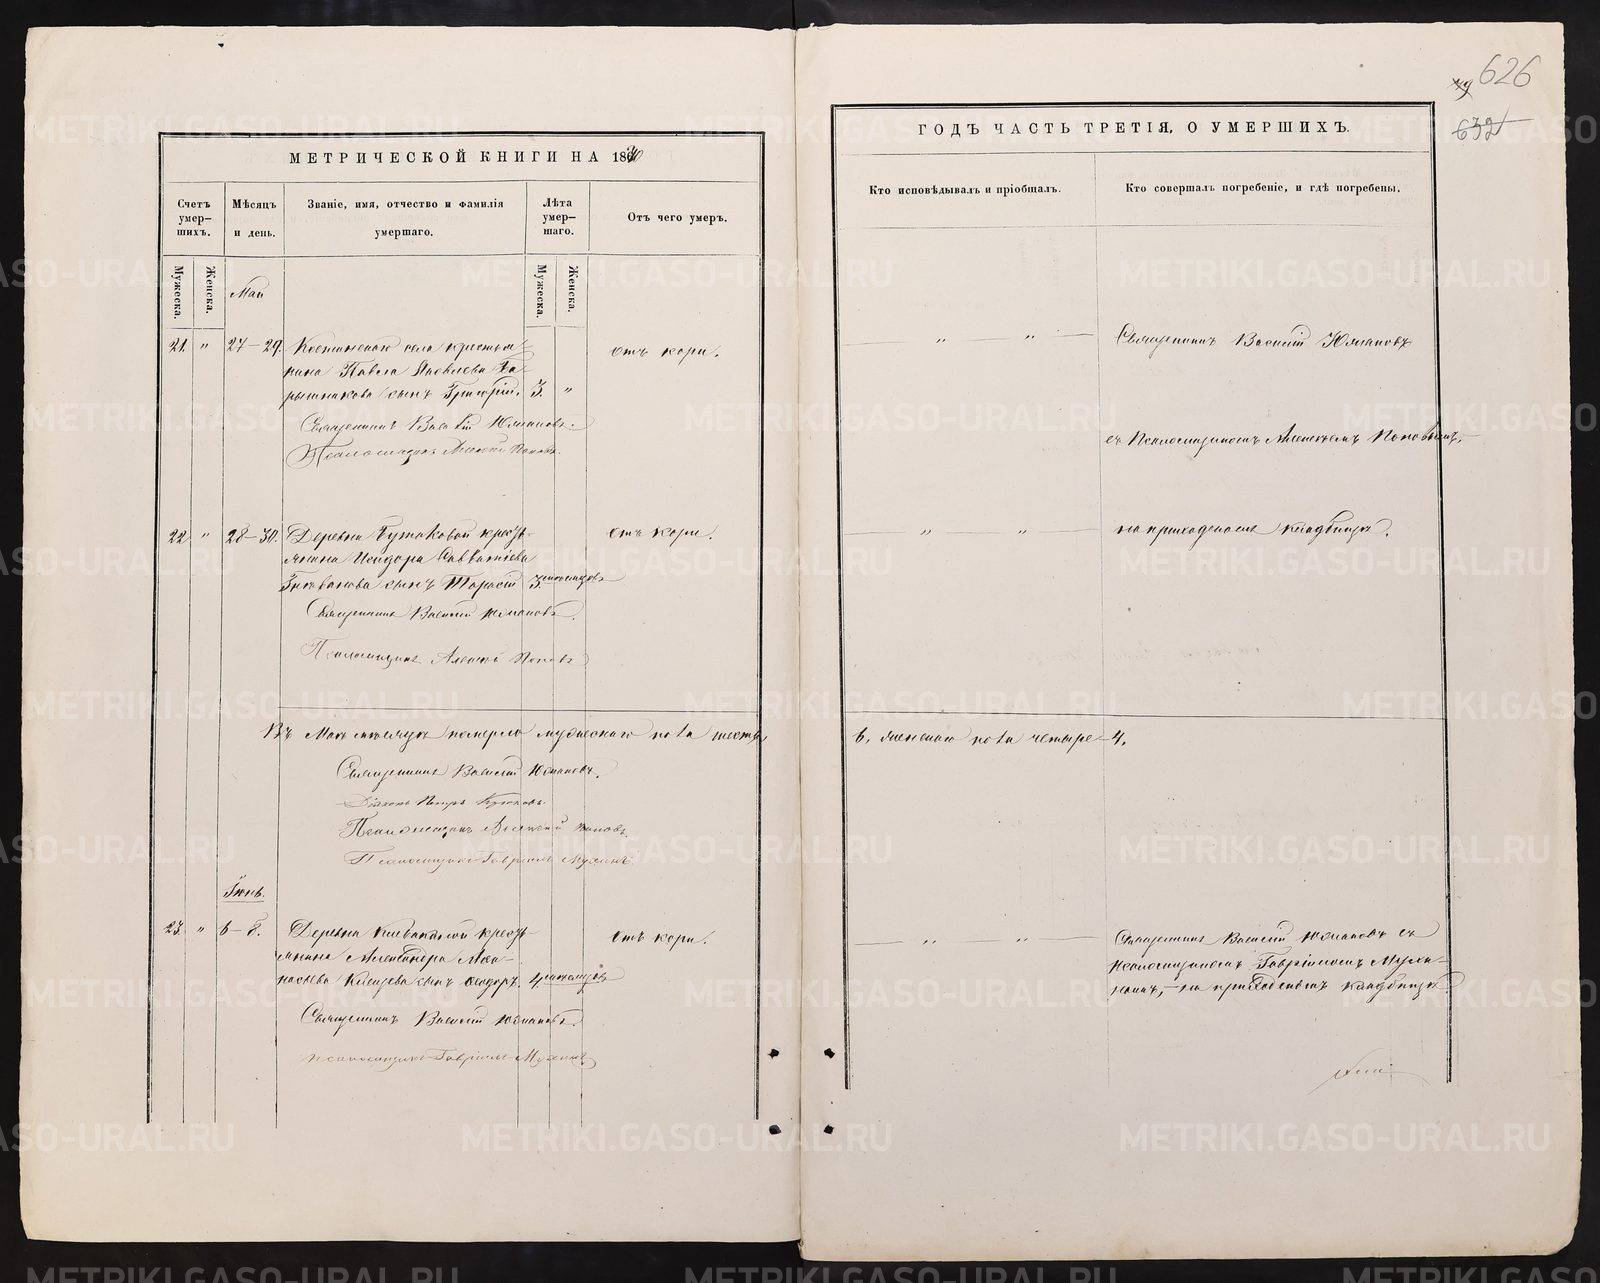 626
632
МЕТРИЧЕСКОЙ КНИГИ НА 18
ГОДЪ ЧАСТЬ ТРЕТІЯ, О УМЕРШИХЪ.
Счетъ умер-
шихъ.
Мѣсяцъ
и день.
Званіе, имя, отчество и фамилія
умершаго.
Лѣта
умер-
шаго.
Отъ чего умеръ.
Кто исповѣдывалъ и пріобщалъ.
Кто совершалъ погребеніе, и гдѣ погребены.
Мужеска.
Женска.
Май
Мужеска.
Женска.
21. " 27-29. села крестья-
нина Павла Яковлева Ба-
рышникова сынъ Григорій. 3. "
отъ кори.
Священникъ Василій Юмановъ.
Псаломщикъ Алексѣй Поповъ.
" "
Священникъ Василій Юмановъ
съ Псаломщикомъ Алексѣемъ Поповымъ,
22. " 28-30. Деревни Бутаковой кресть-
янина Исидора Савватіева
сынъ Тарасій 3 мѣсяцовъ
отъ кори.
Священникъ Василій Юмановъ.
Псаломщикъ Алексѣй Поповъ
" "
на приходскомъ кладбищѣ.
Въ Маѣ мѣсяцѣ померло мужескаго пола шесть,
6, женскаго пола четыре 4.
Священникъ Василій Юмановъ.
Діаконъ Петръ
Псаломщикъ Алексѣй Поповъ.
Псаломщикъ Гавріилъ Мухинъ.
Іюнь.
23. " 6-8. Деревни кресть-
янина Александра Аѳа-
насьева сынъ Ѳеодоръ. 4 мѣсяцовъ
отъ кори.
Священникъ Василій Юмановъ.
Псаломщикъ Гавріилъ Мухинъ
" "
Священникъ Василій Юмановъ съ
псаломщикомъ Гавріиломъ Мухи-
нымъ, на приходскомъ кладбищѣ.
METRIKI.GASO-URAL.RU